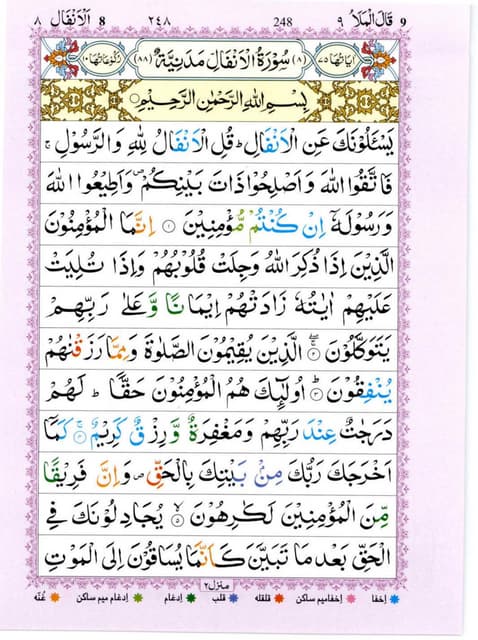 ٩ قَالَ الْمَلَأُ 9 248 ٢٤٨ 8 اَلْاَنْفَال ٨
اٰيَاتُهَا ٧٥ (٨) سُوْرَةُ الْاَنْفَالِ مَدَنِيَّةٌ (٨٨) رُكُوْعَاتُهَا ١٠
بِسْمِ اللّٰهِ الرَّحْمٰنِ الرَّحِيْمِ ○
يَسْـَٔلُوْنَكَ عَنِ الْاَنْفَالِ ؕ قُلِ الْاَنْفَالُ لِلّٰهِ وَالرَّسُوْلِ ۚ
فَاتَّقُوا اللّٰهَ وَاَصْلِحُوْا ذَاتَ بَيْنِكُمْ ۪ وَاَطِيْعُوا اللّٰهَ
وَرَسُوْلَهٗۤ اِنْ كُنْتُمْ مُّؤْمِنِيْنَ ۝١ اِنَّمَا الْمُؤْمِنُوْنَ
الَّذِيْنَ اِذَا ذُكِرَ اللّٰهُ وَجِلَتْ قُلُوْبُهُمْ وَاِذَا تُلِيَتْ
عَلَيْهِمْ اٰيٰتُهٗ زَادَتْهُمْ اِيْمَانًا وَّعَلٰى رَبِّهِمْ
يَتَوَكَّلُوْنَ ۝٢ الَّذِيْنَ يُقِيْمُوْنَ الصَّلٰوةَ وَمِمَّا رَزَقْنٰهُمْ
يُنْفِقُوْنَ ۝٣ اُولٰٓئِكَ هُمُ الْمُؤْمِنُوْنَ حَقًّا ؕ لَهُمْ
دَرَجٰتٌ عِنْدَ رَبِّهِمْ وَمَغْفِرَةٌ وَّرِزْقٌ كَرِيْمٌ ۝٤ كَمَاۤ
اَخْرَجَكَ رَبُّكَ مِنْۢ بَيْتِكَ بِالْحَقِّ ۪ وَاِنَّ فَرِيْقًا
مِّنَ الْمُؤْمِنِيْنَ لَكٰرِهُوْنَ ۝٥ يُجَادِلُوْنَكَ فِى
الْحَقِّ بَعْدَ مَا تَبَيَّنَ كَاَنَّمَا يُسَاقُوْنَ اِلَى الْمَوْتِ
منزل ٢
اِخفا اِخفامیم ساکن قلقله قلب اِدغام اِدغام میم ساکن غُنّه